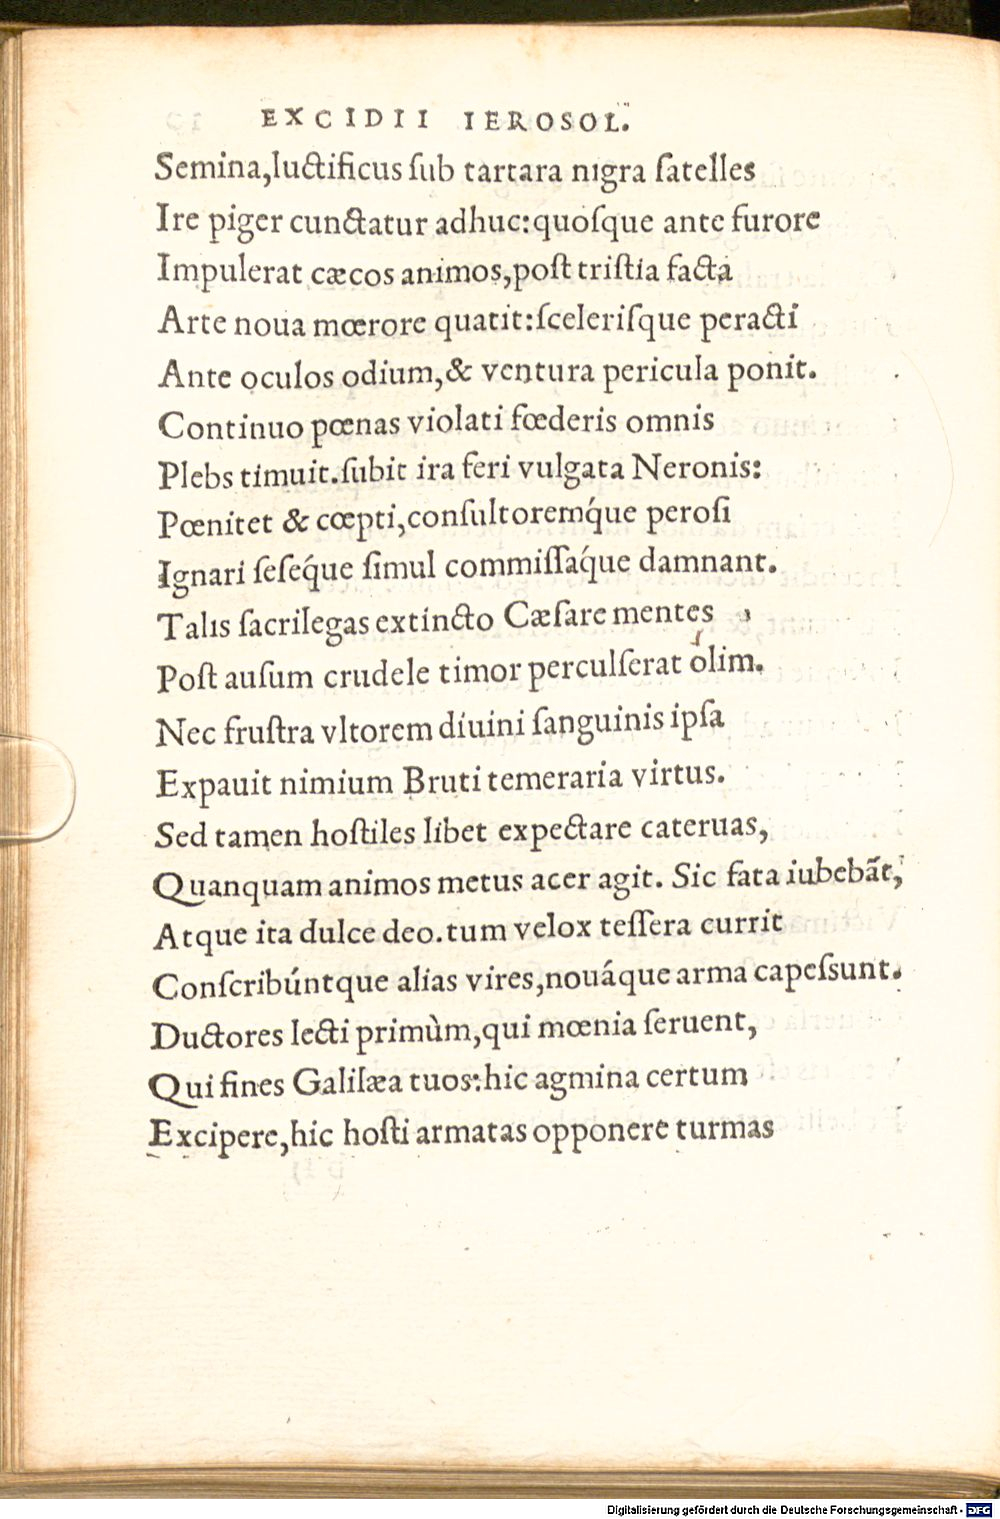 EXCIDII IEROSOL.
Semina,luctificus ſub tartara nigra ſatelles
Ire piger cunctatur adhuc:quoſque ante furore
Impulerat cæcos animos,poſt triſtia facta
Arte noua mœrore quatit:ſceleriſque peracti
Ante oculos odium,& ventura pericula ponit.
Continuo pœnas violati fœderis omnis
Plebs timuit.ſubit ira feri vulgata Neronis:
Pœnitet & cœpti,conſultoremq́ue peroſi
Ignari ſeſeq́ue ſimul commiſſaq́ue damnant.
Talis ſacrilegas extincto Cæſare mentes
Poſt auſum crudele timor perculſerat olim.
Nec fruſtra vltorem diuini ſanguinis ipſa
Expauit nimium Bruti temeraria virtus.
Sed tamen hoſtiles libet expectare cateruas,
Quanquam animos metus acer agit. Sic fata iubebãt,
Atque ita dulce deo.tum velox teſſera currit
Conſcribúntque alias vires,nouáque arma capeſsunt.
Ductores lecti primùm,qui mœnia ſeruent,
Qui fines Galilæa tuos:hic agmina certum
Excipere,hic hoſti armatas opponere turmas
Digitalisierung gefördert durch die Deutsche Forschungsgemeinschaft - DFG